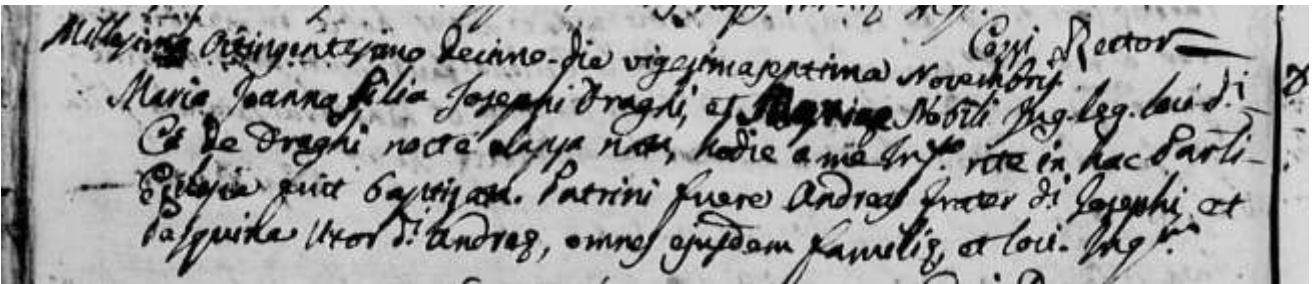 Cossi Rector
Millesimo Octingentesimo decimo die vigesimaseptima Novembris
Maria Joanna filia Josephi Draghi, et Mariae Nobili Jug. leg. loci di
Ca de Draghi nocte elapsa nata, hodie a me rite in hac Parli
Ecclesia fuit baptizata. Patrini fuere Andreas frater di Josephi, et
Pasquina Uxor di Andreę, omnes ejusdem familię, et loci.